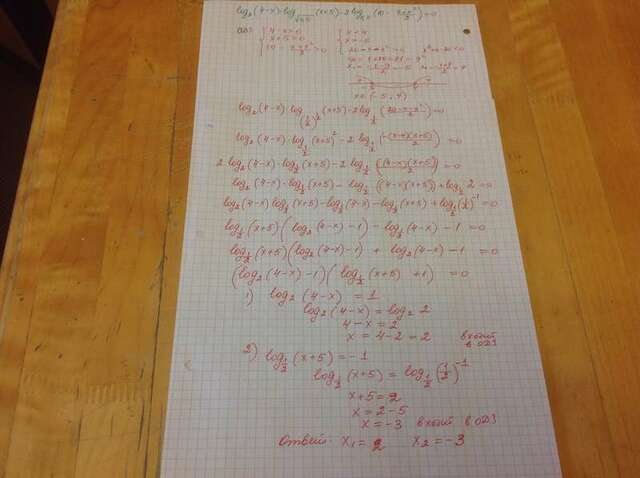 log₂(4-x)·log (x+5)-2log (10 - )=0
ОДЗ: { 4-x>0 { x<4
x+5>0
x∈(-5; 4)
log₂(4-x)·log (x+5)-2log_{1/2}( )=0
log₂(4-x)·log_{1/2}(x+5)²-2log_{1/2}(-(x-4)(x+5)/2)=0
2log₂(4-x)·log_{1/2}(x+5)-2log_{1/2}((4-x)(x+5)/2)=0
log₂(4-x)·log_{1/2}(x+5)- log_{1/2}((4-x)(x+5))+log_{1/2}2=0
log₂(4-x)log_{1/2}(x+5)-log_{1/2}(4-x)-log_{1/2}(x+5)+log_{1/2}(1/2)⁻¹=0
log_{1/2}(x+5)(log₂(4-x)-1)-log_{1/2}(4-x)-1=0
log_{1/2}(x+5)(log₂(4-x)-1)+log₂(4-x)-1=0
(log₂(4-x)-1)(log_{1/2}(x+5)+1)=0
1) log₂(4-x)=1
log₂(4-x)=log₂2
4-x=2
x=4-2=2 в ОДЗ
2) log_{1/2}(x+5)=-1
log_{1/2}(x+5)=log_{1/2}(1/2)⁻¹
x+5=2
x=2-5
x=-3 в ОДЗ
Ответ: x₁=2 x₂=-3